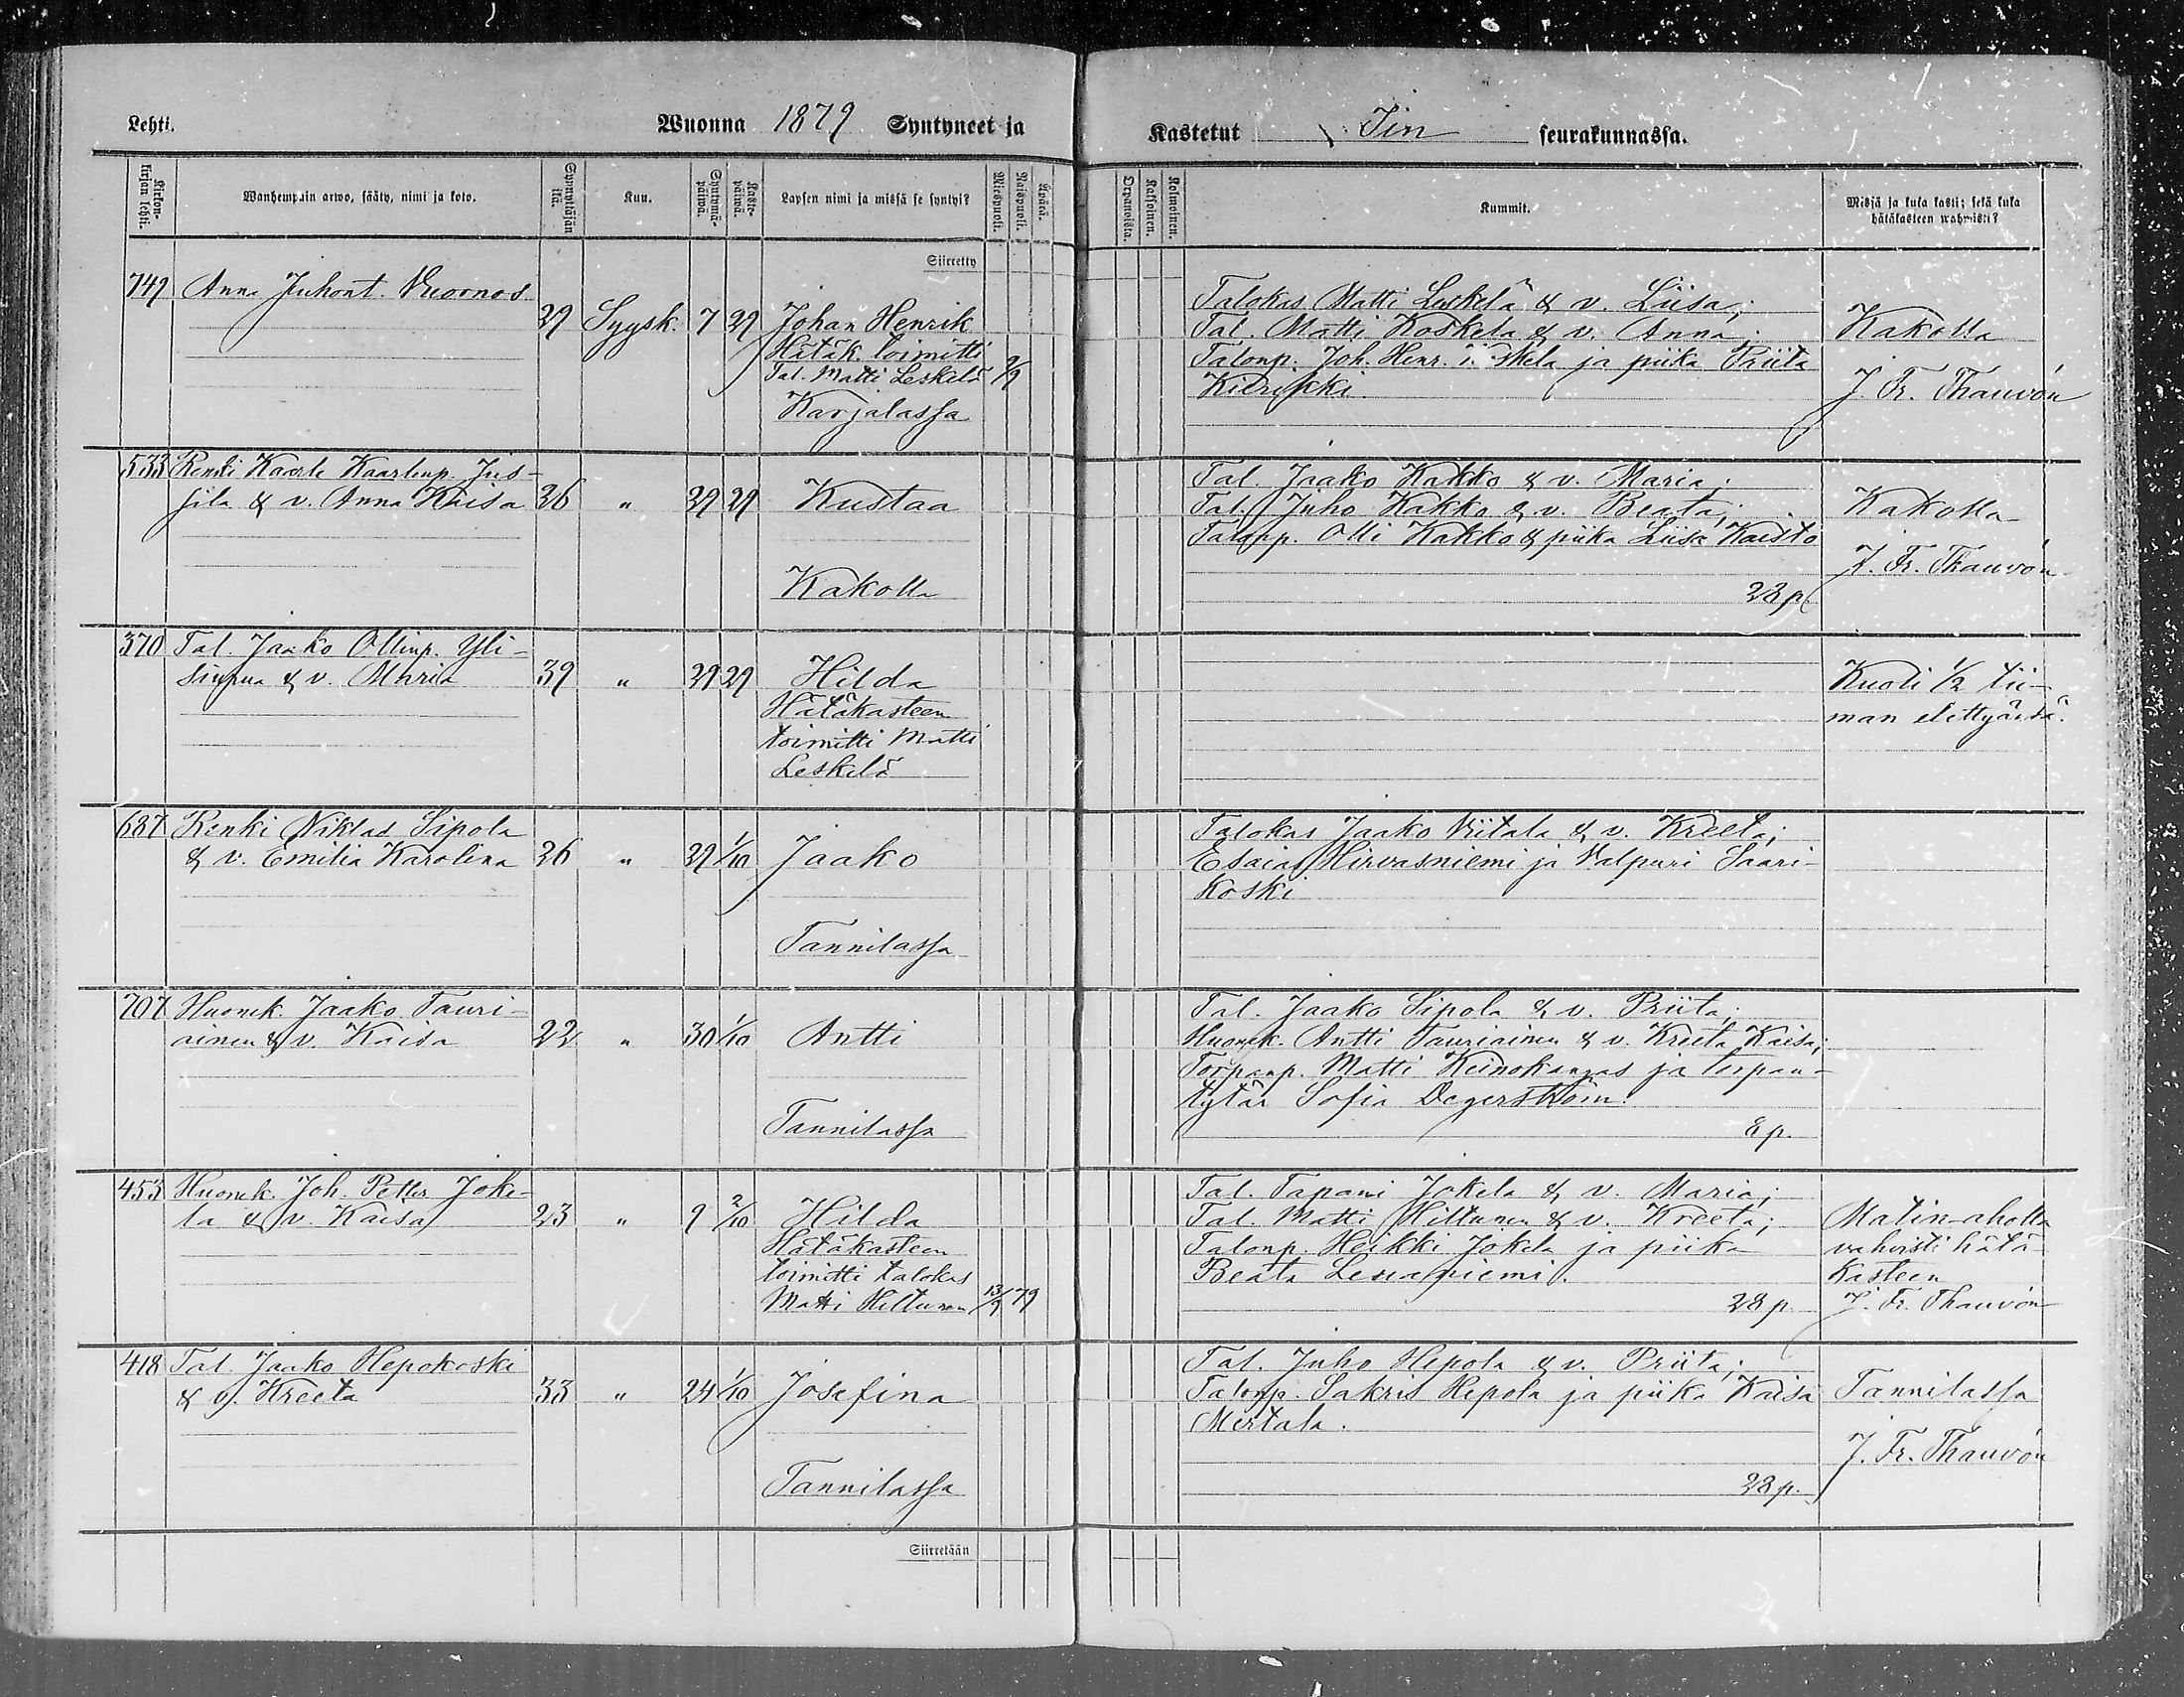 Lehti. Wuonna 1879 Syntyneet ja
Kastetut Iin seurakunnassa.
Kirkon-kirjan lehti.
Wanhempain arwo, sääty, nimi ja koto.
Synnyttäjän ikä.
Kuu.
Syntymä-päiwä.
Kaste-päiwä.
Lapsen nimi ja missä se syntyi?
Miespuoli.
Waispuoli.
Äpärä.
Kaksoinen.
Kolmoinen.
Kummit.
Missä ja kuka kasti; sekä kuka
hätäkasteen wahwisti?
Siirretty
749 Anna Juhont. Vuornos
29 Syysk. 7 29 Johan Henrik
Hätäk. toimitti
Tal. Matti Leskelä
Karjalassa
Talokas Matti Leskelä & v. Liisa;
Tal. Matti Koskela & v. Anna;
Talonp. Joh. Henr. ja piika Priita
Kierikki.
Kakolla
J. Fr. Thauvón
533 Renki Kaarle Kaarlenp. Jus-
sila & v. Anna Kaisa 36 " 29 29 Kustaa
Kakolla
Tal. Jaako Kakko & v. Maria;
Tal. Juho Kakko & v. Beata;
Talonp. Olli Kakko & piika Liisa Kaisto
28 p.
Kakolla
J. Fr. Thauvón
370 Tal. Jaako Ollinp. Yli-
& v. Maria 39 " 29 29 Hilda
Hätäkasteen
toimitti Matti
Leskelä
Kuoli 1/2 tii-
man elettyänsä.
687 Renki Niklas Sipola
& v. Emilia Karolina 26 " 29 1/10 Jaako
Tannilassa
Talokas Jaako Viitala & v. Kreeta;
Esaias Hirvasniemi ja Valpuri Saari-
koski
707 Huonek. Jaako Tauri-
ainen & v. Kaisa 22 " 30 1/10 Antti
Tannilassa
Tal. Jaako Sipola & v. Priita;
Huonek. Antti Tauriainen & v. Kreeta Kaisa;
Torpanp. Matti Keinokangas ja torpan-
tytär Sofia Degerström.
8 p.
453 Huonek. Joh. Petter Joke-
la & v. Kaisa 23 " 9 2/10 Hilda
Hätäkasteen
toimitti talokas
Matti Hiltunen 13/9 79
Tal. Tapani Jokela & v. Maria;
Tal. Matti Hiltunen & v. Kreeta;
Talonp. Heikki Jokela ja piika
Beata
28 p.
Matin-aholla
vahvisti hätä-
kasteen
J. Fr. Thauvón
418 Tal. Jaako Hepokoski
& v. Kreeta 33 " 24 1/10 Josefina
Tannilassa
Tal. Juho Hepola & v. Priita;
Talonp. Sakris Hepola ja piika Kaisa
Mertala.
28 p.
Tannilassa
J. Fr. Thauvón
Siirretään